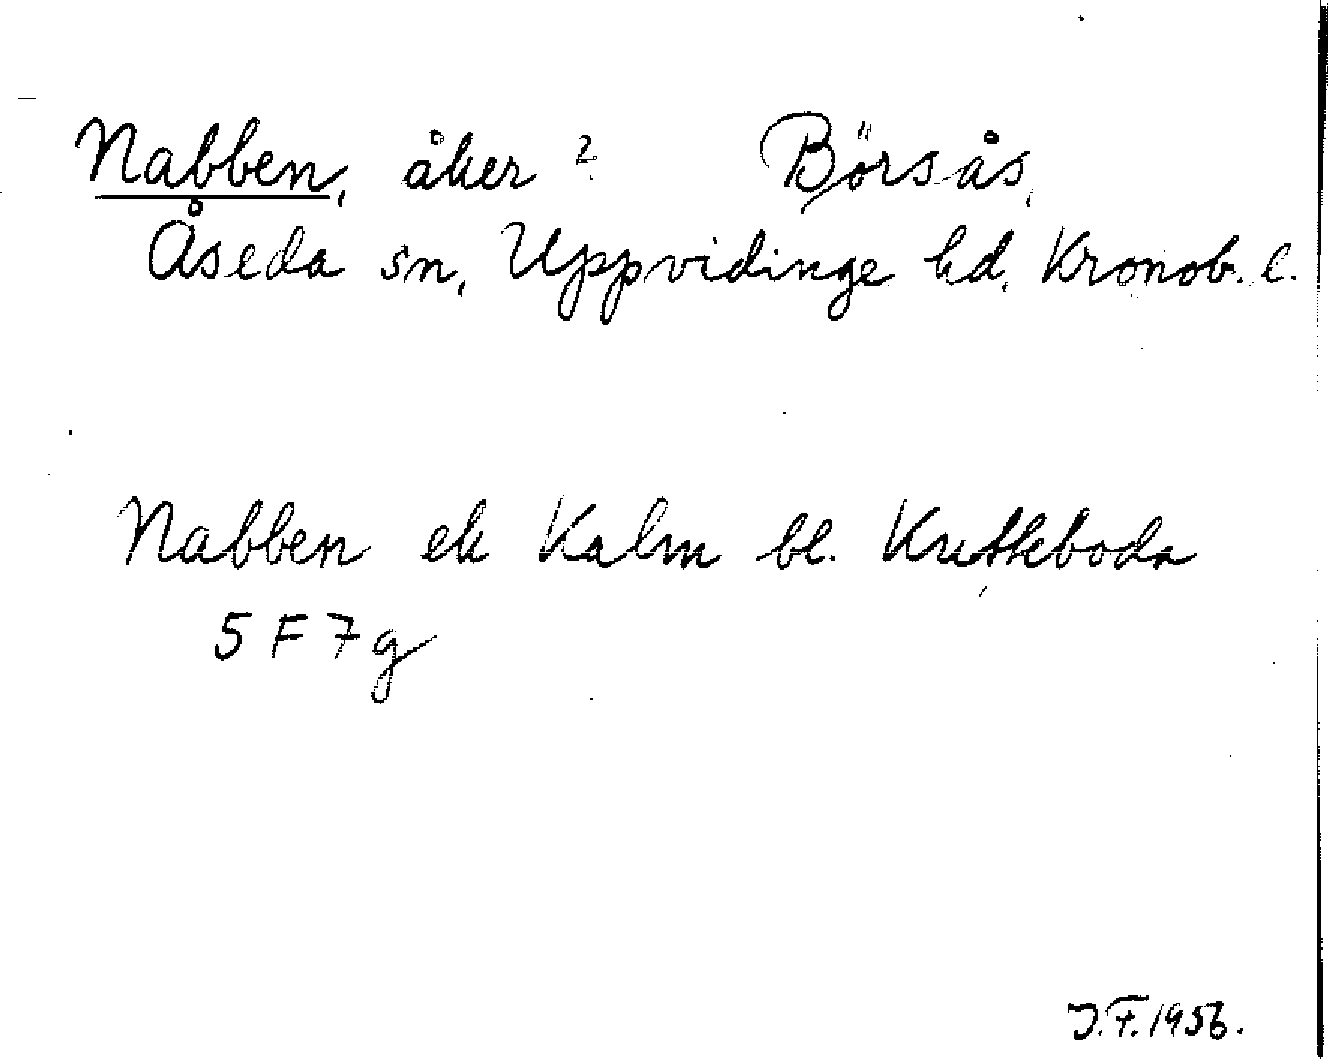 Nabben, åker? Börsås,
Åseda sn, Uppvidinge hd, Kronob. l.
Nabben ek Kalm bl. Krutkboda
5 F 7 g
J.F. 1956.